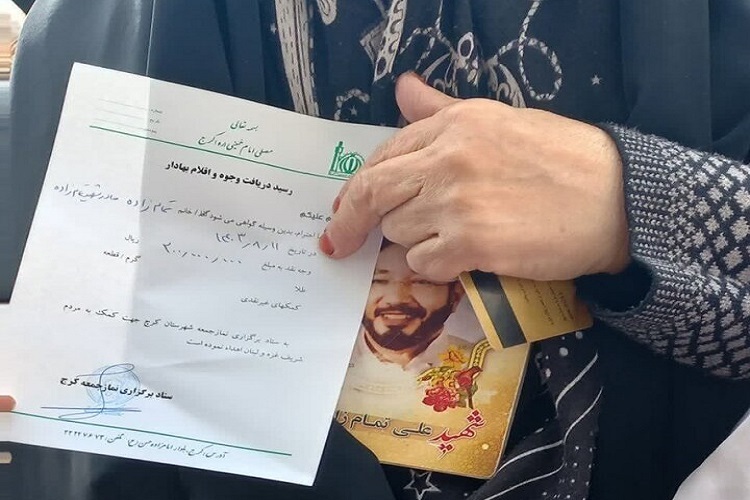 بسمه تعالی
مصلی امام خمینی (ره) کرج
رسید دریافت وجوه و اقلام بهادار
م علیکم
با احترام، بدین وسیله گواهی می شود آقا/ خانم تمام زاده مادر شهید تمام زاده
در تاریخ ۱۴۰۳/۸/۱۱
وجه نقد به مبلغ ۳۰۰،۰۰۰،۰۰۰ ریال
طلا گرم / قطعه
کمکهای غیرنقدی
به ستاد برگزاری نمازجمعه شهرستان کرج جهت کمک به مردم
شریف غزه و لبنان اهداء نموده است
ستاد برگزاری نمازجمعه کرج
آدرس: کرج، بلوار امامزاده حسن (ع) تلفن:
شهید علی تمام زا